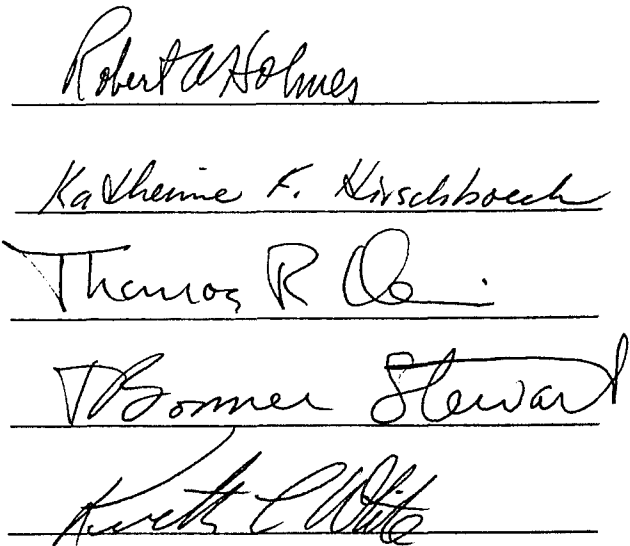 Robert A Holmes
Katherine F. Hirschboeck
Thomas R
T Bonner Stewart
C White